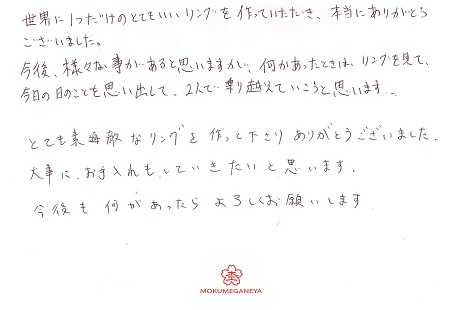 世界に1つだけのとてもいいリングを作っていただき、本当にありがとう
ございました。
今後、様々な事があると思いますが、何かあったときは、リングを見て、
今日の日のことを思い出して、2人で乗り越えていこうと思います...
とても素敵なリングを作って下さりありがとうございました。
大事に、お手入れもしていきたいと思います。
今後も何かあったらよろしくお願いします
MOKUMEGANEYA